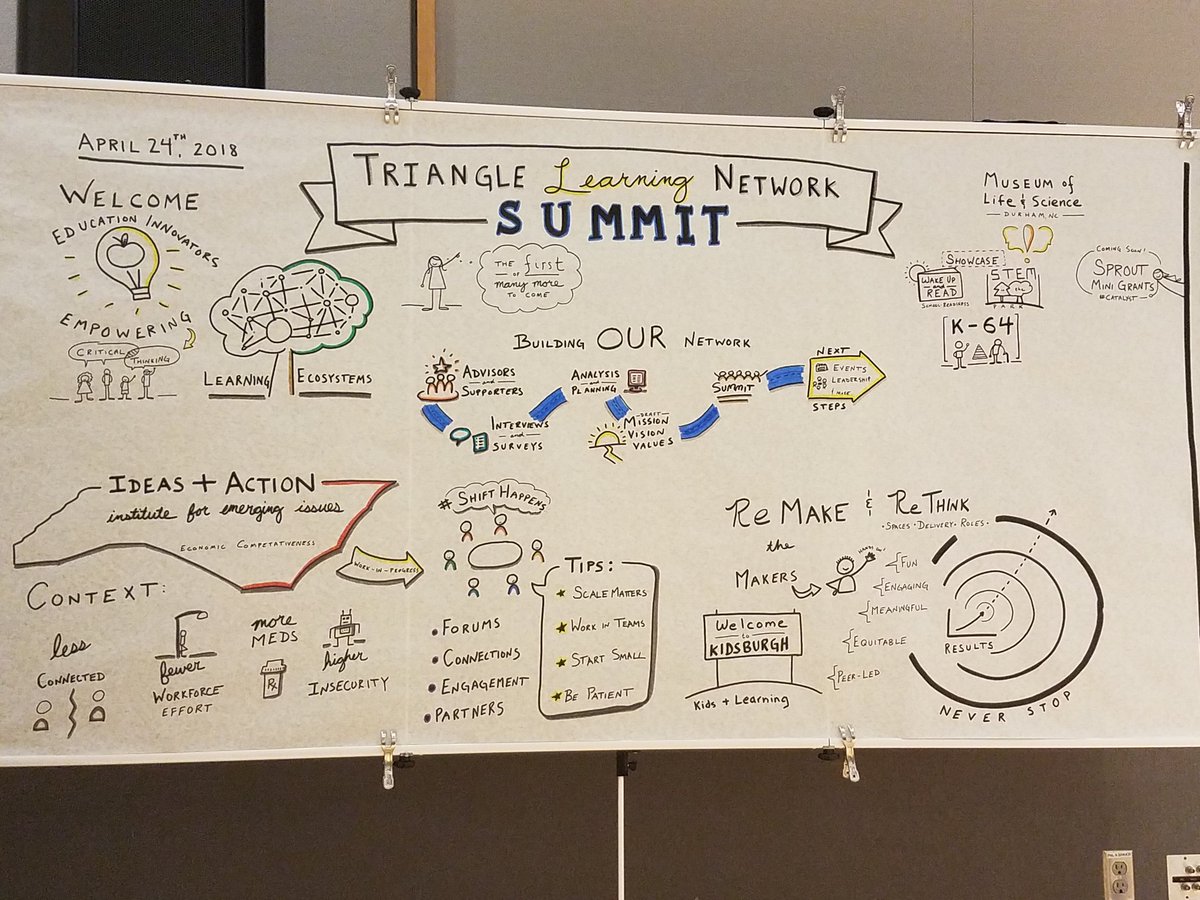 APRIL 24TH, 2018
WELCOME
EDUCATION INNOVATORS
EMPOWERING
CRITICAL
THINKING
LEARNING
ECOSYSTEMS
TRIANGLE Learning NETWORK
SUMMIT
THE first
OF
many more
TO COME
MUSEUM of
LIFE & SCIENCE
DURHAM, NC
SHOWCASE
WAKE UP
and
READ
SCHOOL READINESS
STEM
PARK
[K-64]
COMING SOON!
SPROUT
MINI GRANTS
#CATALYST
BUILDING OUR NETWORK
ADVISORS
and
SUPPORTERS
INTERVIEWS
and
SURVEYS
ANALYSIS
and
PLANNING
DRAFT
MISSION
VISION
VALUES
SUMMIT
NEXT
EVENTS
LEADERSHIP
& MORE
STEPS
IDEAS + ACTION
institute for emerging issues
ECONOMIC COMPETATIVENESS
WORK-IN-PROGRESS
CONTEXT:
less
CONNECTED
fewer
WORKFORCE
EFFORT
more
MEDS
Rx
higher
INSECURITY
# SHIFT HAPPENS
• FORUMS
• CONNECTIONS
• ENGAGEMENT
• PARTNERS
TIPS:
★ SCALE MATTERS
★ WORK IN TEAMS
★ START SMALL
★ BE PATIENT
Re MAKE & ReTHINK
• SPACES • DELIVERY • ROLES •
the
MAKERS
HANDS ON!
FUN
ENGAGING
MEANINGFUL
EQUITABLE
PEER-LED
Welcome
to
KIDSBURGH
Kids + Learning
RESULTS
NEVER STOP